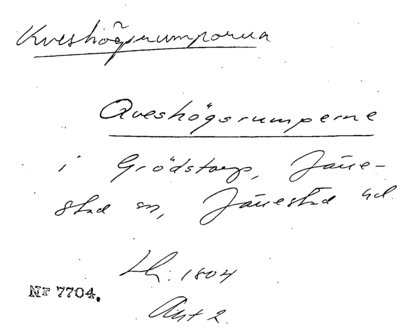 Kveshögsrumporna
Qveshögsrumperne
i Grödstorp, Järre-
stad sn, Järrestad hd.
Lh. 1804
Akt 2.
NR 7704.